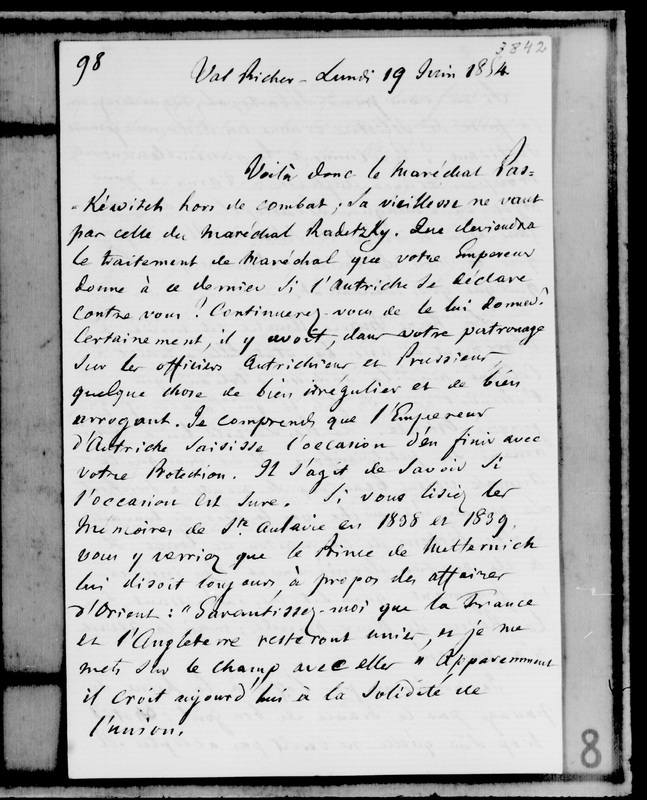 98
3842
Val Richer - Lundi 19 Juin 1854
Voilà donc le maréchal Pas=
-Kéwitch hors de combat ; sa vieillesse ne vaut
pas celle du Maréchal Radetzky. Que deviendra
le traitement de Maréchal que votre Empereur
donne à ce dernier si l'Autriche se déclare
contre vous ? Continuerez-vous de le lui donner ?
Certainement, il y avoit, dans votre patronage
sur les officiers Autrichiens et Prussiens,
quelque chose de bien irrégulier et de bien
arrogant. Je comprends que l'Empereur
d'Autriche saisisse l'occasion d'en finir avec
votre Protection. Il s'agit de savoir si
l'occasion est sure. Si vous lisiez les
Mémoires de Ste Aulaire en 1838 et 1839,
vous y verriez que le Prince de Metternich
lui disoit toujours à propos des affaires
d'Orient : "Garantissez-moi que la France
et l'Angleterre resteront unies, et je me
mets sur le champ avec elles" Apparemment
il croit aujourd'hui à la solidité de
l'union.
8